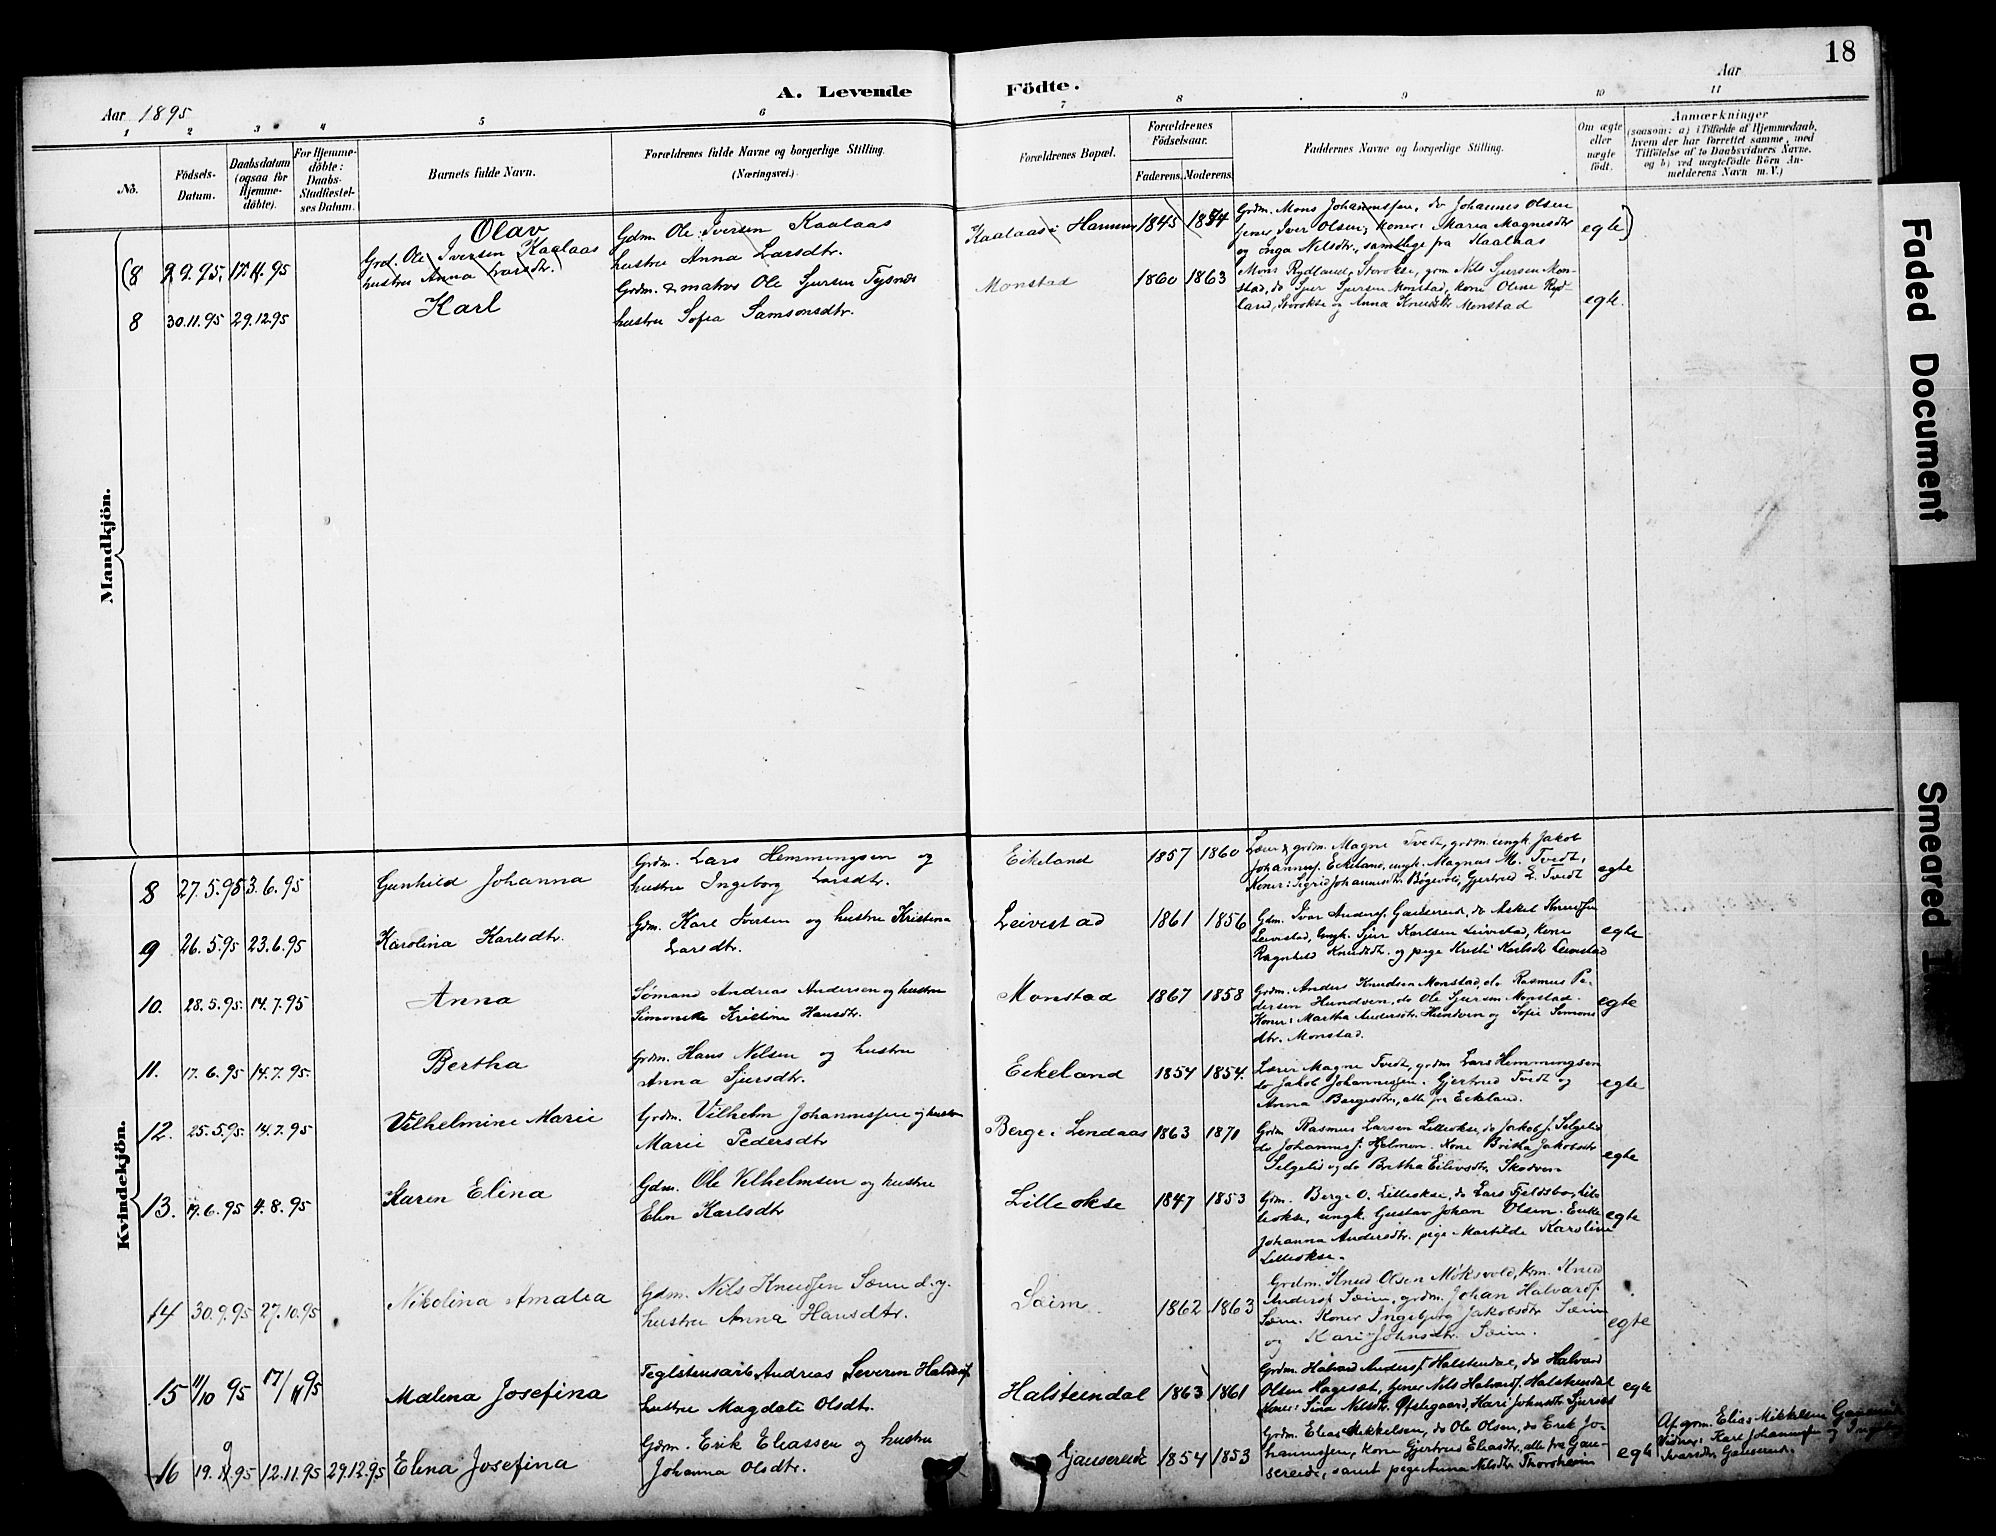 18
Aar 1895
A. Levende Födte.
Aar
1 2 3 4 5 6 7 8 9 10 11
No.
Födsels-Datum.
Daabsdatum (ogsaa for Hjemme-döbte).
For Hjemme-döbte: Daabs-Stadfæstel-ses Datum.
Barnets fulde Navn.
Forældrenes fulde Navne og borgerlige Stilling.
(Næringsvei.)
Forældrenes Bopæl.
Forældrenes Födselsaar.
Faderens. Moderens.
Faddernes Navne og borgerlige Stilling.
Om ægte eller uægte født.
Anmærkninger
(saasom: a) i Tilfælde af Hjemmedaab,
hvem der har forrettet samme, med
Tilföielse af to Daabsvidners Navne.
og b) ved uægtefödte Börn An-
melderens Navn m.V.)
Mandkjön.
(8 9.9.95. 17.11.95
Olav
Grd. Ole Iversen Kaalaas
hustru Anna Larsdtr.
Gdm. Ole Iversen Kaalaas
hustru Anna Larsdtr.
Kaalaas i Hammer 1845 1854
Grdm. Mons Johannessen, do Johannes Olsen
Gjener Iver Olsen, Koner: Maria Magnesdtr
og Inga Nilsdtr., samtlige fra Kaalaas
egte)
8 30.11.95 29.12.95
Karl
Grdm. & matros Ole Sjursen Tysnes
hustru Sofia Samsonsdtr.
Monstad 1860 1863
Mons Rydland, Storokse, grm Nils Sjursen Mon-
stad, do Sjur Sjursen Monstad, kone Oline Ryd-
land, Storokse og Anna Knudsdtr Monstad
egte.
Kvindekjön.
8 27.5.95 3.6.95
Gunhild Johanna
Grdm. Lars Hemmingsen og
hustru Ingeborg Larsdtr.
Eikeland 1857 1860
Lærer & grdm. Magne Tvedt, grdm. ungk. Jakob
Johannesf. Eikeland, ungk. Magnus M. Tvedt,
Koner: Sigrid Johannesdtr. Bögevold, Gjertrud L. Tvedt
egte
9 26.5.95 23.6.95
Karolina Karlsdtr.
Gdm. Karl Iversen og hustru Kristina
Larsdtr.
Leivestad 1861 1856
Gdm. Ivar Andersf. Gausereid, do Askel Knudsen
Leivestad, Ungk. Sjur Karlsen Leivestad, kone
Ragnhild Knudsdtr. og pige Kristi Karlsdtr Leivestad
egte
10. 28.5.95. 14.7.95
Anna
Sömand Andreas Andersen og hustru
Simonette Kristine Hansdtr.
Monstad 1867 1858
Grdm. Anders Knudsen Monstad, do Rasmus Pe-
dersen Hundven, do Ole Sjursen Monstad.
Koner: Martha Andersdtr. Hundven og Sofie Simons
dtr. Monstad.
egte
11. 17.6.95 14.7.95.
Bertha
Grdm. Hans Nilsen og hustru
Anna Sjursdtr.
Eikeland 1854 1854.
Lærer Magne Tvedt, grdm. Lars Hemmingsen
do Jakob Johannessen. Gjertrud Tvedt og
Anna Børgesdtr., alle fra Eikeland.
egte
12. 25.5.95. 14.7.95
Vilhelmine Marie
Grdm. Vilhelm Johannessen og hustru
Marie Pedersdtr
Berge i Lindaas 1863 1871
Grdm Rasmus Larsen Lilleokse, do Jakob J. Selgelid
do Johannes J. Hjelmen. Kone Britha Jakobsdtr
Selgelid og do Britha Eilevsdtr. Skodven
egte
13. 19.6.95 4.8.95
Karen Elina
Gdm. Ole Vilhelmsen og hustru
Elin Karlsdtr
Lilleokse 1847 1853
Gdm. Berge O. Lilleokse, do Lars Fjeldsbø, Lil-
leokse, ungk. Gustav Johan Olsen. Enke
Johanna Andersdtr. pige Martilde Karoline
Lilleokse.
egte
14 30.9.95 27.10.95
Nikolina Amalia
Gdm. Nils Knudsen Sæim d.y.
hustru Anna Hansdtr.
Sæim 1862 1863
Grdm. Knud Olsen Möksvold, km. Knud
Andersf Sæim, grdm. Johan Halvarsf
Sæim. Koner Ingebjørg Jakobsdtr Sæim
og Kari Johnsdtr. Sæim.
egte
15 11/10 95 17/11 95
Malena Josefina
Teglstensarb. Andreas Severin Halvarsf
hustru Magdeli Olsdtr.
Halsteindal 1863 1861
Grdm. Halvard Andersf. Halstendal, do Halvard
Olsen Hagesæt, Gjener Nils Halvarsf. Halstendal
Koner: Sina Nilsdtr. Øfstegaard, Kari Johnsdtr Sjursæt
egte
16 19.9.95 12.11.95 29.12.95
Elina Josefina
Gdm. Erik Eliassen og hustru
Johanna Olsdtr.
Gausereide 1854 1853
Grdm. Elias Mikkelsen, do Ole Olsen, do Erik Jo-
hannessen, kone Gjertrud Eliasdtr., alle fra Gau-
sereide, samt pige Anna Nilsdtr Thorsheim
egte
Af grm. Elias Mikkelsen Gausereid
Vidner: Karl Johannessen og Ingeborg
Ivarsdtr. Gausereid.
Faded Document
Smeared